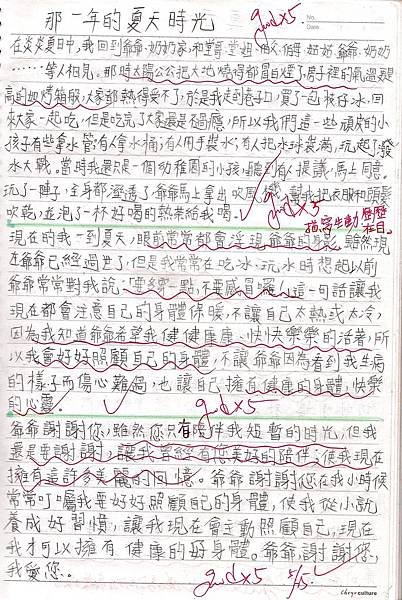 那一年的夏天時光 good×5
No.
Date
在炎炎夏日中,我回到爺爺、奶奶家,和堂哥、堂姐、伯父、伯母、姐姐、爺爺、奶奶
……等人相見。那時太陽公公把大地燒得都冒白煙了,房子裡的氣溫
高的如烤箱般,大家都熱得受不了,於是我走到巷子口,買了一包冰,回
來大家一起吃,但是吃完了大家還是不過癮,所以我們這一些頑皮的小
孩子有些拿水管;有人拿水桶;有人用手裝水;有人把水球裝滿,玩起了潑
水大戰。當時我還只是一個幼稚園的小孩,聽到有人提議,馬上同意。
玩了一陣子,全身都溼透了,爺爺馬上拿出吹風機,幫我把衣服和頭髮
吹乾,並泡了一杯好喝的熱茶給我喝。 good×5
描寫生動 歷歷在目。
現在的我一到夏天,眼前常常都會浮現爺爺的身影,雖然現
在爺爺已經過世了,但是我常常在吃冰、玩水時想起以前
爺爺常常對我說:「一點,不要感冒喔!」這一句話讓我
現在都會注意自己的身體保暖,不讓自己太熱或太冷,
因為我知道爺爺希望我健健康康、快快樂樂的活著,所
以我會好好照顧自己的身體,不讓爺爺因為看到我生病
的樣子而傷心難過,也讓自己擁有健康的身體,快樂
的心靈。 good×5
爺爺謝謝您,雖然您只有陪伴我短暫的時光,但我
還是要謝謝,讓我曾經有您美好的陪伴;使我現在
擁有這許多美麗的回憶。爺爺謝謝您在我小時候
常常叮嚀我要好好照顧自己的身體,使我從小就
養成好習慣,讓我現在會主動照顧自己,現在
我才可以擁有健康的好身體。爺爺,謝謝您,
我愛您。 good×5
Chryi culture